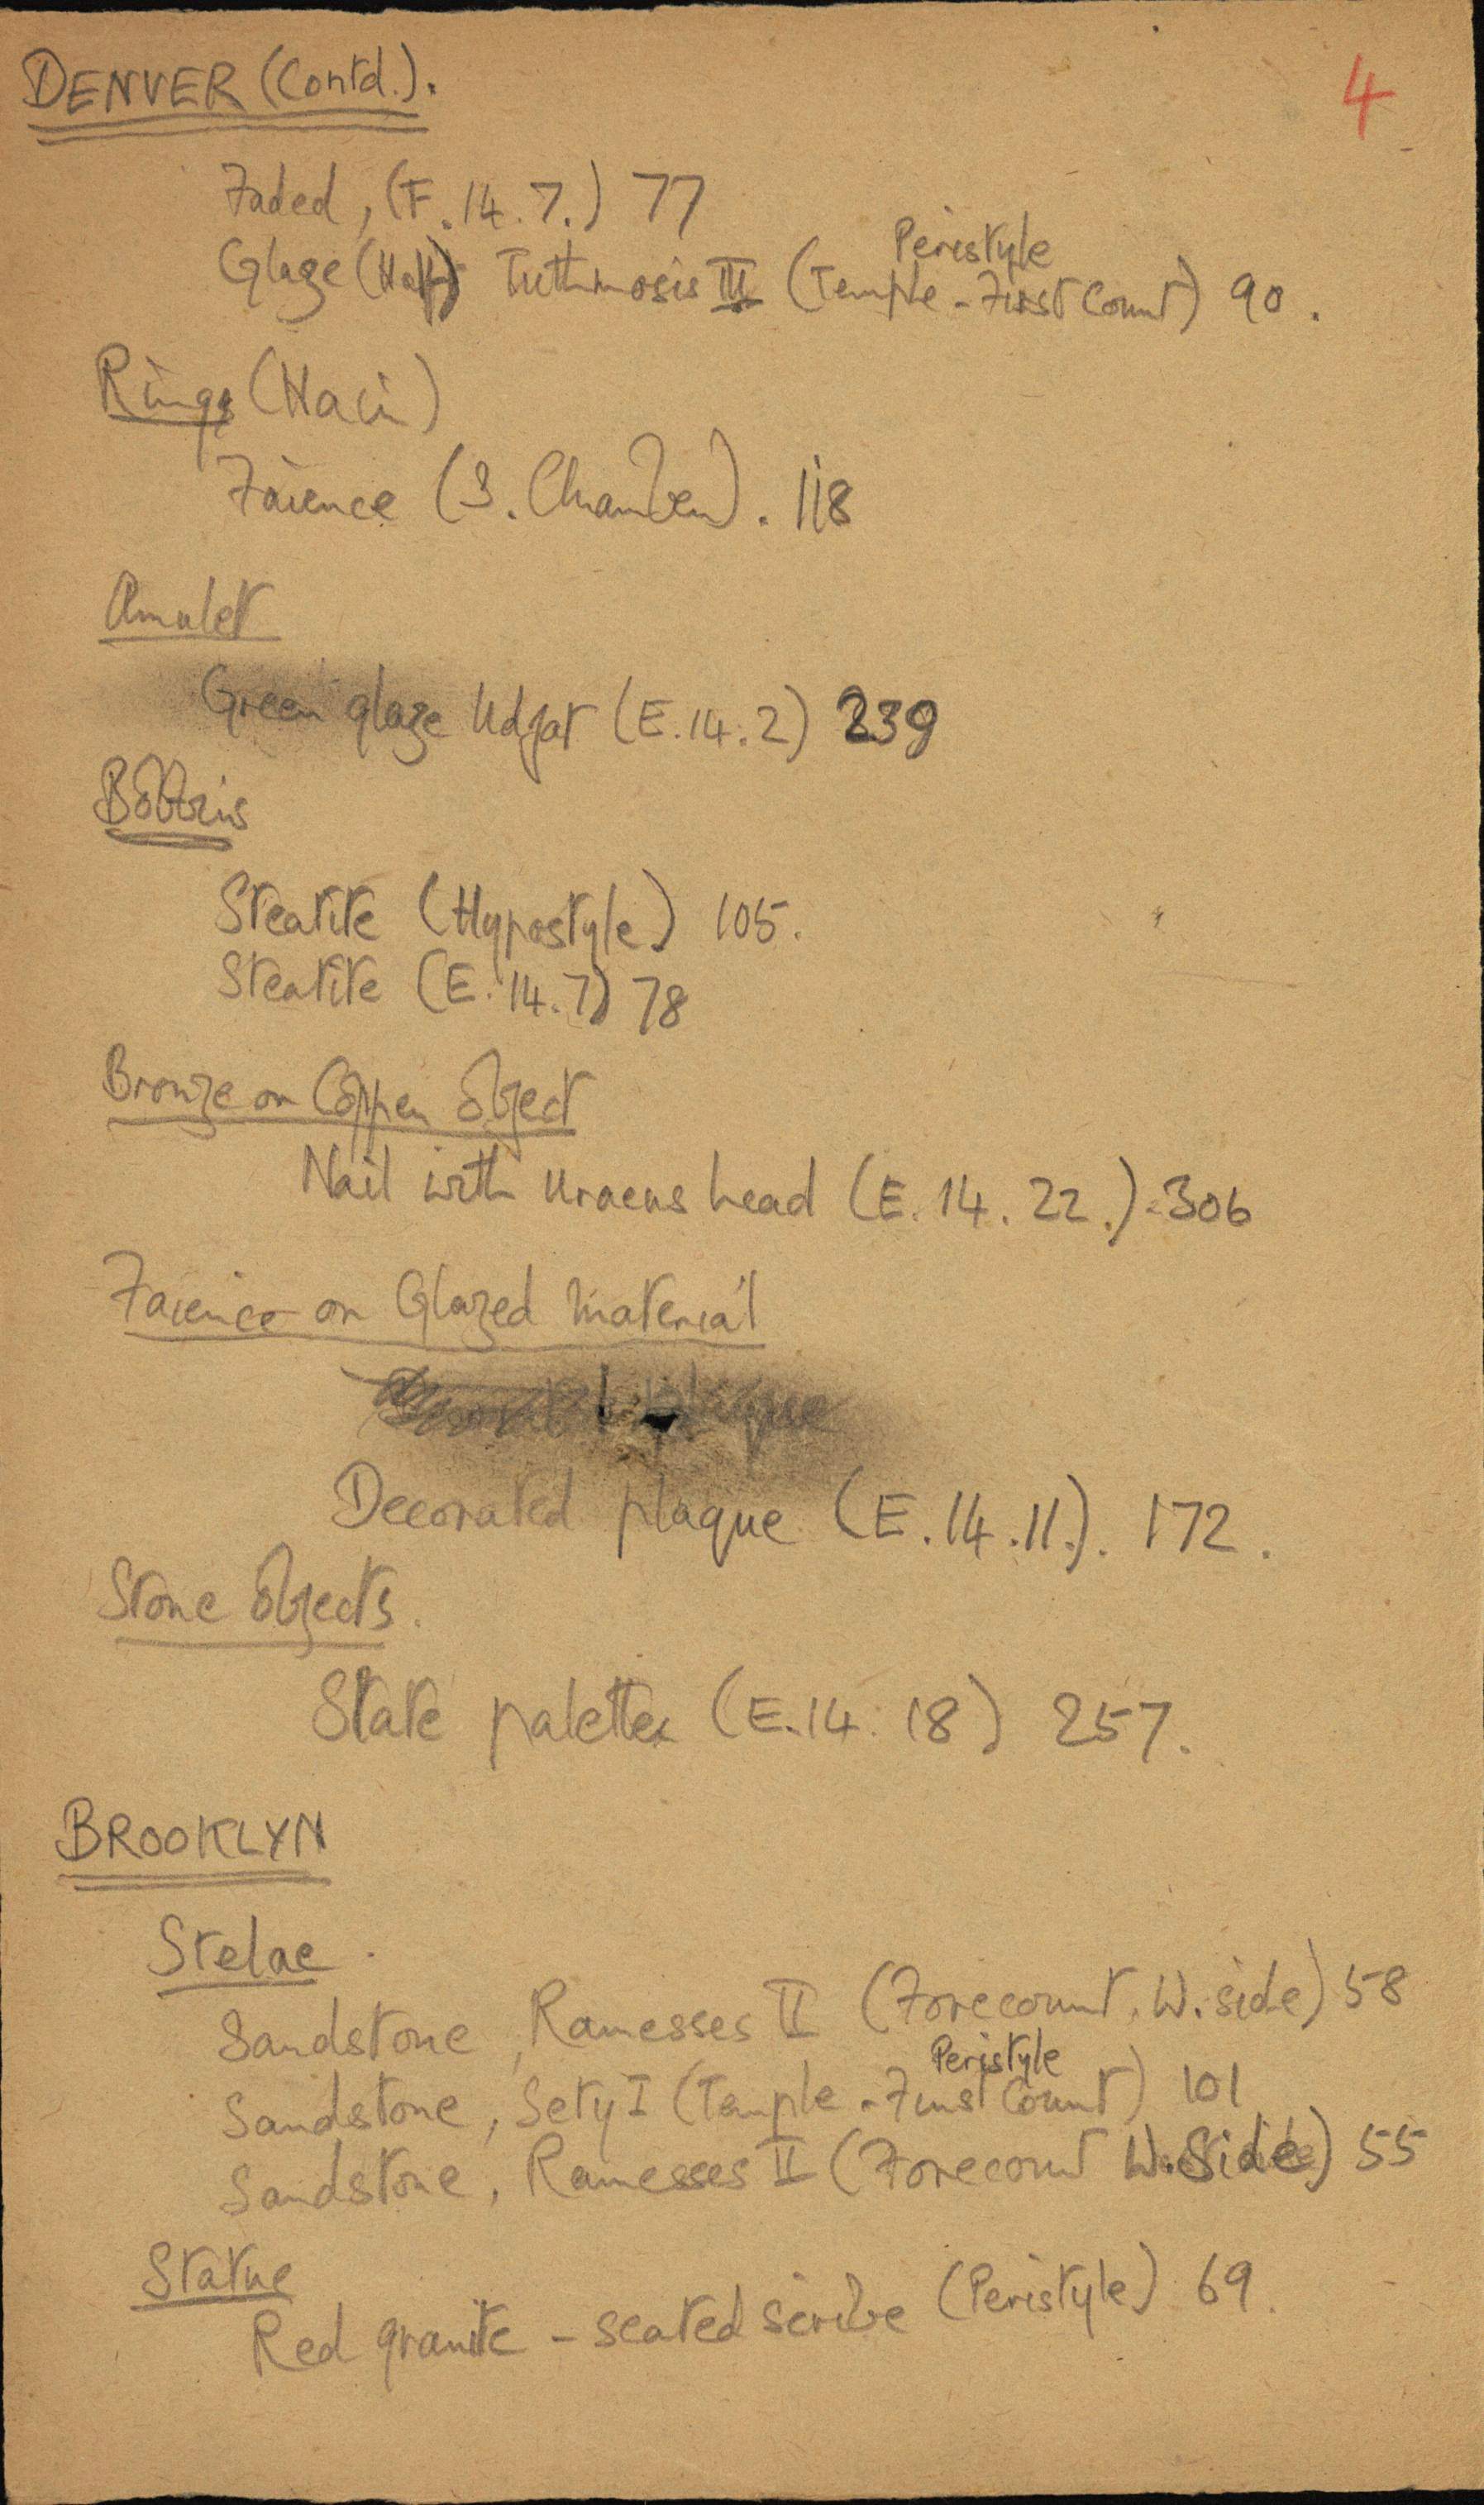 DENVER (Contd.).
4
Faded, (F.14.7.) 77
Peristyle
Glaze (Half) Tuthmosis III (Temple - First Court) 90.
Rings (Hair)
Faience (S. Chamber). 118
Amulet
Green glaze Udjat (E.14.2) 239
Bobbins
Steatite (Hypostyle) 105.
Steatite (E.14.7) 78
Bronze or Copper Object
Nail with uraeus head (E.14.22.). 306
Faience or Glazed material
plaque
Decorated plaque (E.14.11.). 172.
Stone Objects.
Slate palette (E.14.18) 257.
BROOKLYN
Stelae.
Sandstone, Ramesses II (Forecourt, W. side) 58
Peristyle
Sandstone, Sety I (Temple - First Court) 101
Sandstone, Ramesses II (Forecourt W. Side) 55
Statue
Red granite - seated scribe (Peristyle) 69.